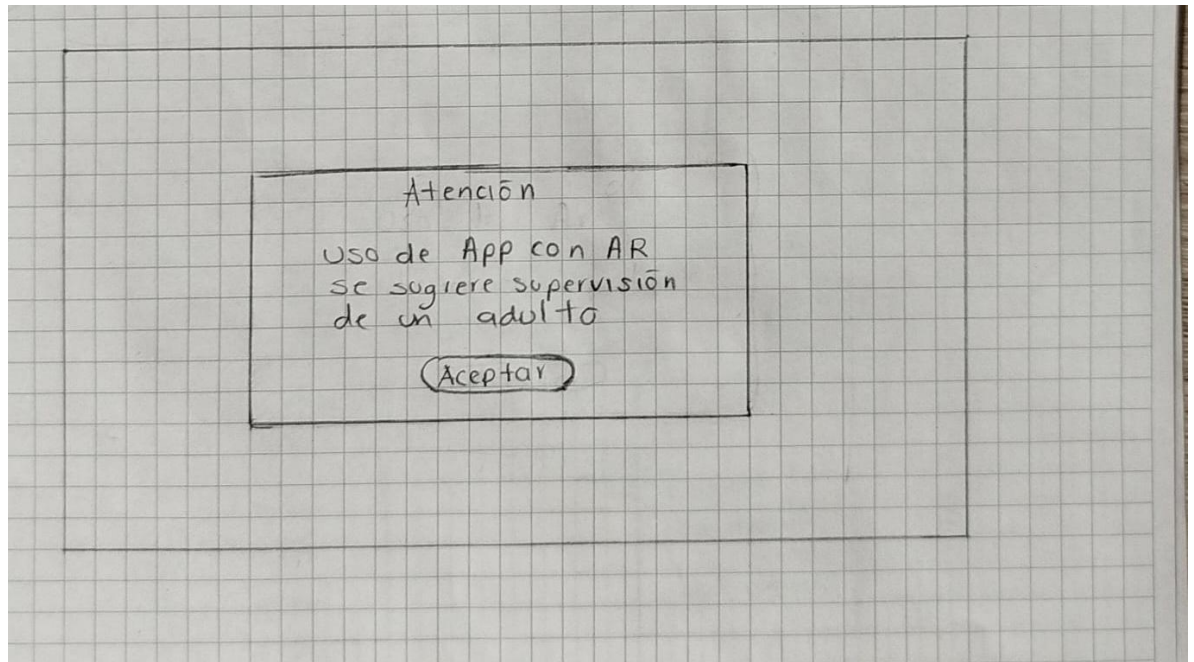 Atención
Uso de App con AR
se sugiere supervisión
de un adulto
Aceptar